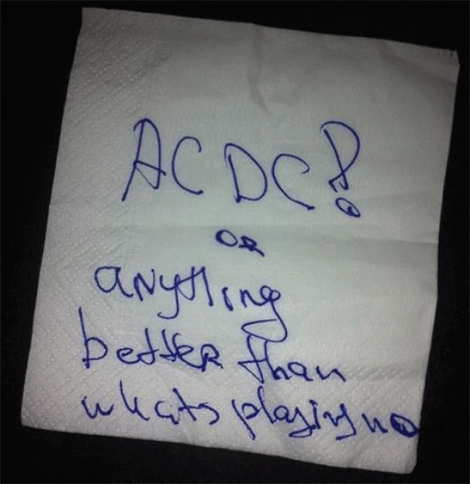 ACDC!
OR
anything
better than
whats playing no